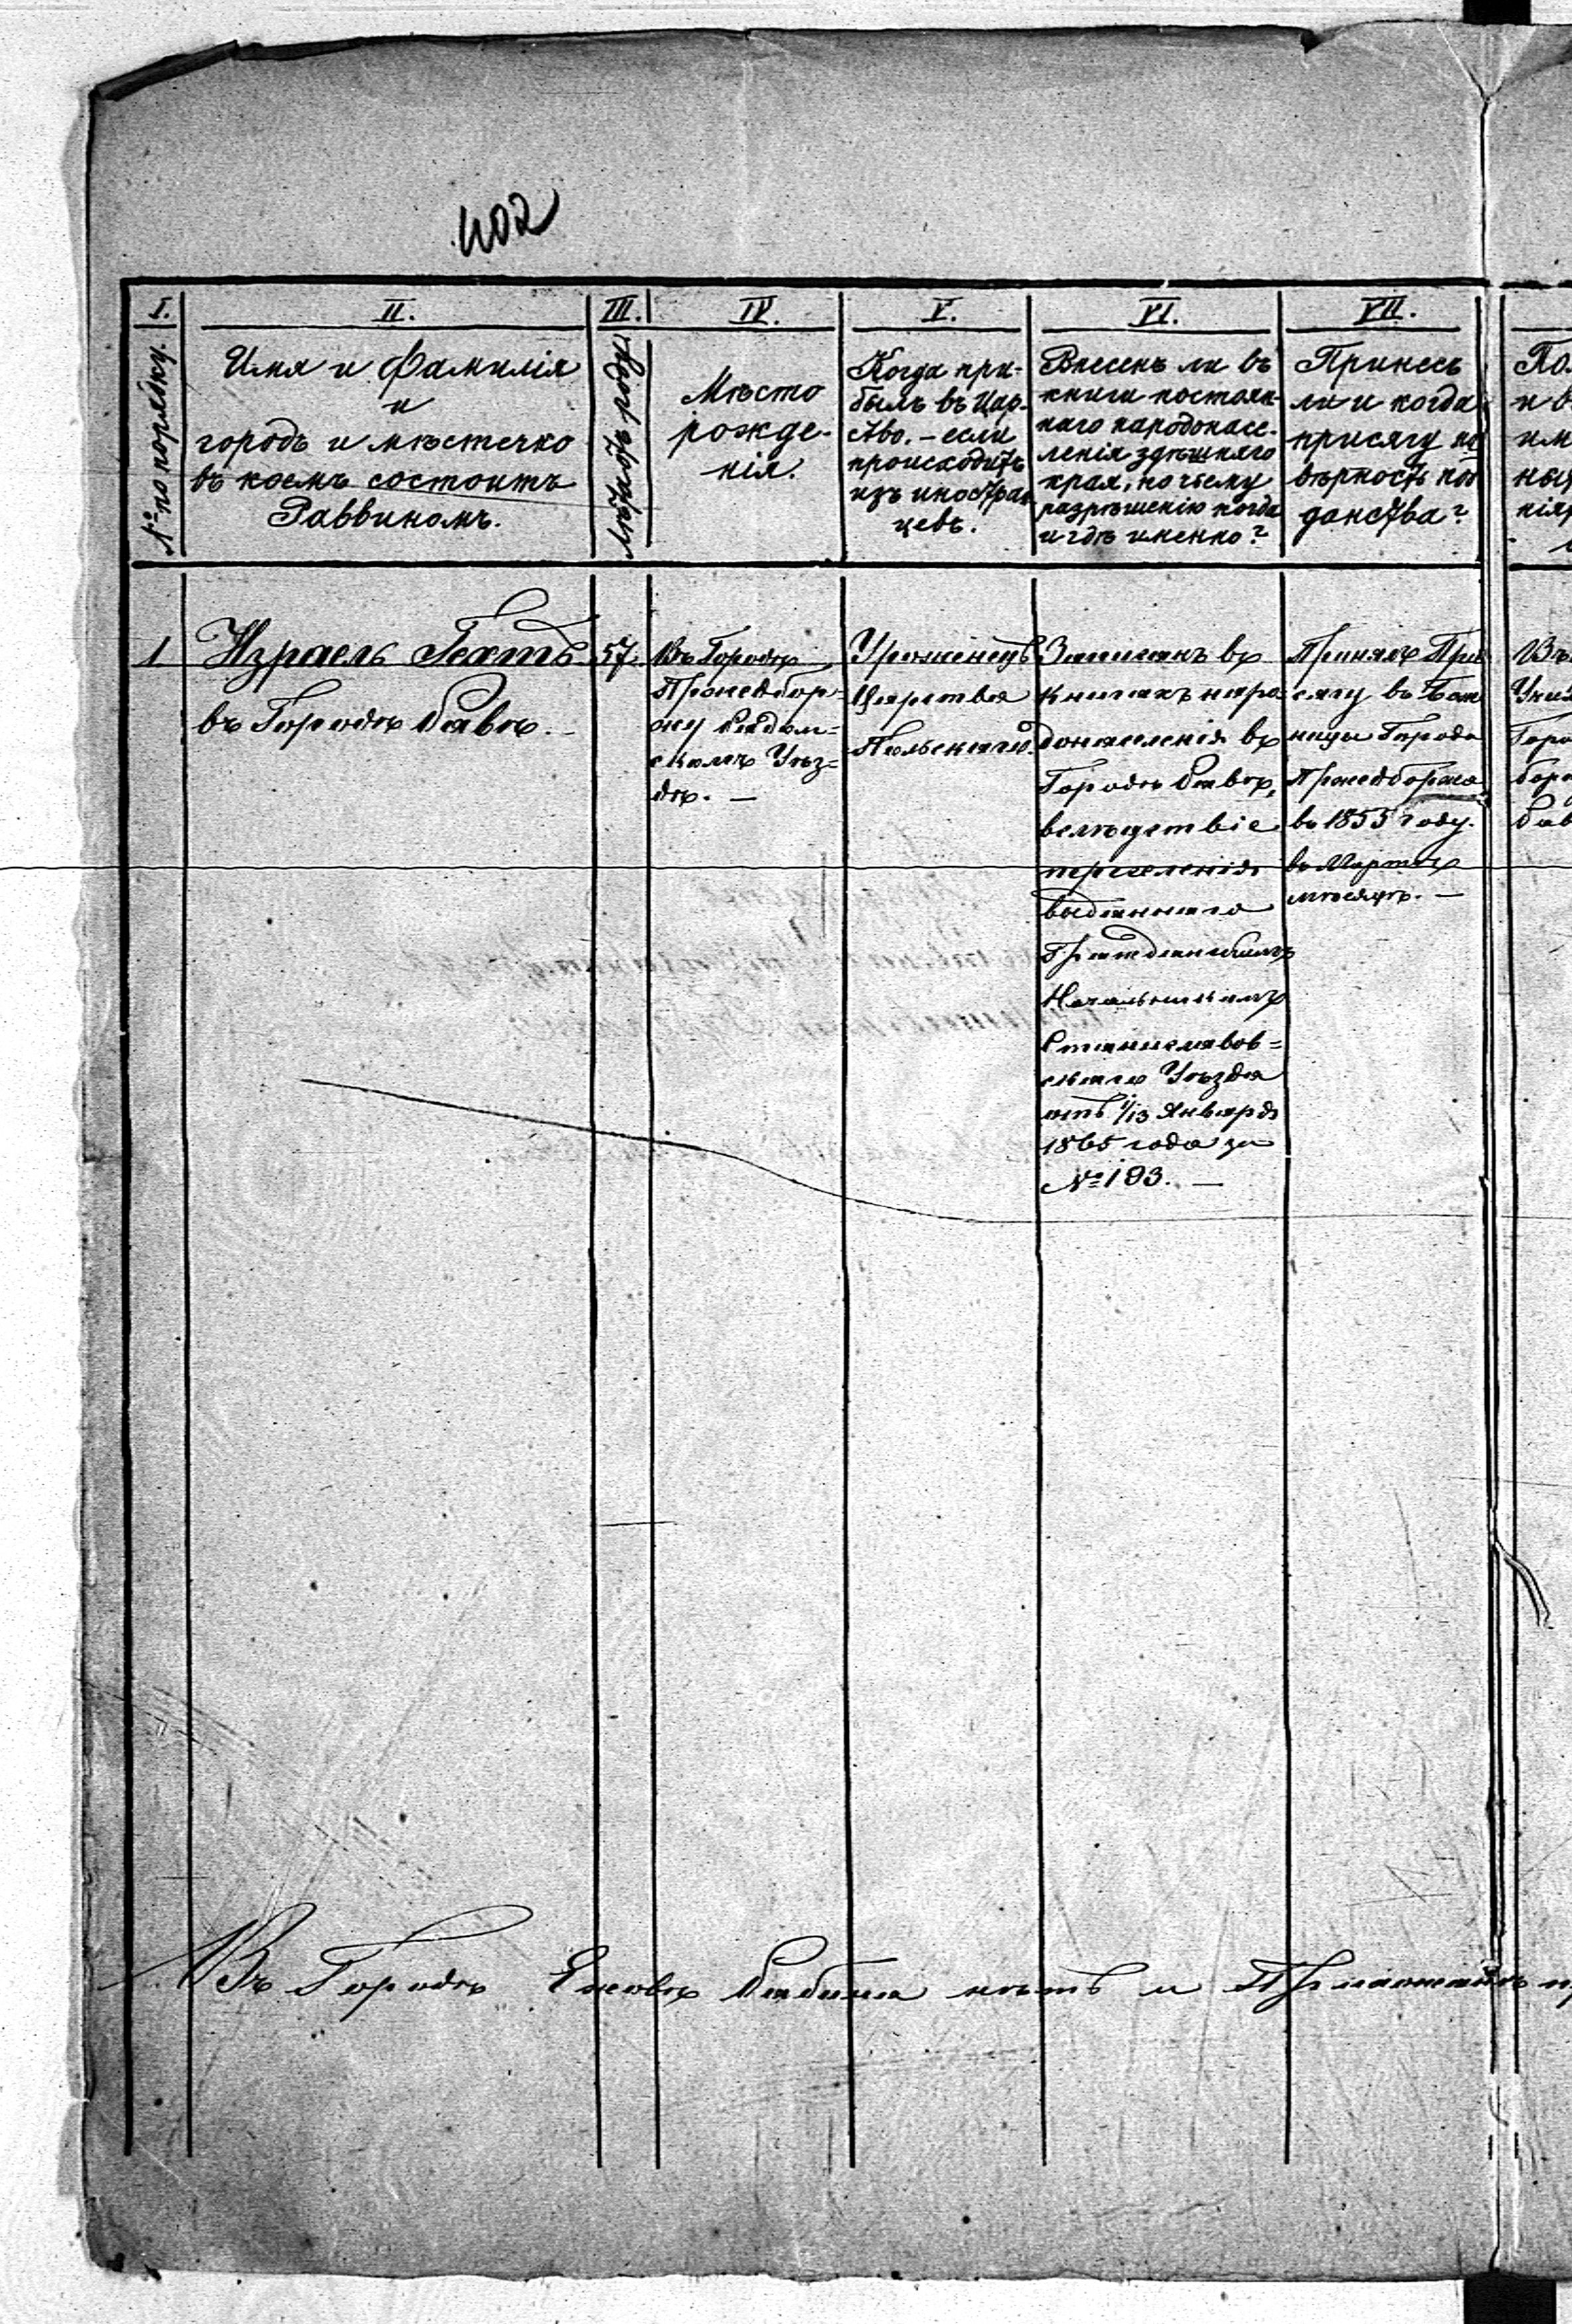 402
I.
№ по порядку.
II.
Имя и Фамилія
и
городъ и мѣстечко
въ коемъ состоитъ
Раввиномъ.
III.
IV.
Мѣсто
рожде-
нія.
V.
Когда при-
былъ въ Цар-
ство. – если
происходитъ
изъ иностран
цевъ.
VI.
Внесенъ ли въ
книги постоян-
наго народонасе-
ленія здѣшняго
края, по чьему
разрѣшенію когда
и гдѣ именно?
VII.
Принесъ
ли и когда
присягу на
вѣрность под
данства?
1
Израель Гехтъ
въ Городѣ Равѣ. –
57.
Въ Городѣ
Пржедбор-
жу Радом-
скомъ Уѣз=
дѣ. –
Уроженецъ
Царства
Польскаго.
Записанъ въ
книгахъ наро
донаселенія въ
Городѣ Равѣ,
вслѣдствіе
переселенія
выданнаго
Гражданскимъ
Начальникомъ
Станиславов=
скаго Уѣзда
отъ 1/13 Января
1865 года за
№ 193. –
Принялъ При
сягу въ Бож
ницы Города
Пржедборжа
въ 1855 году.
въ Мартѣ
мѣсяцѣ. –
Въ Городѣ Ежовѣ Рабина нѣтъ и